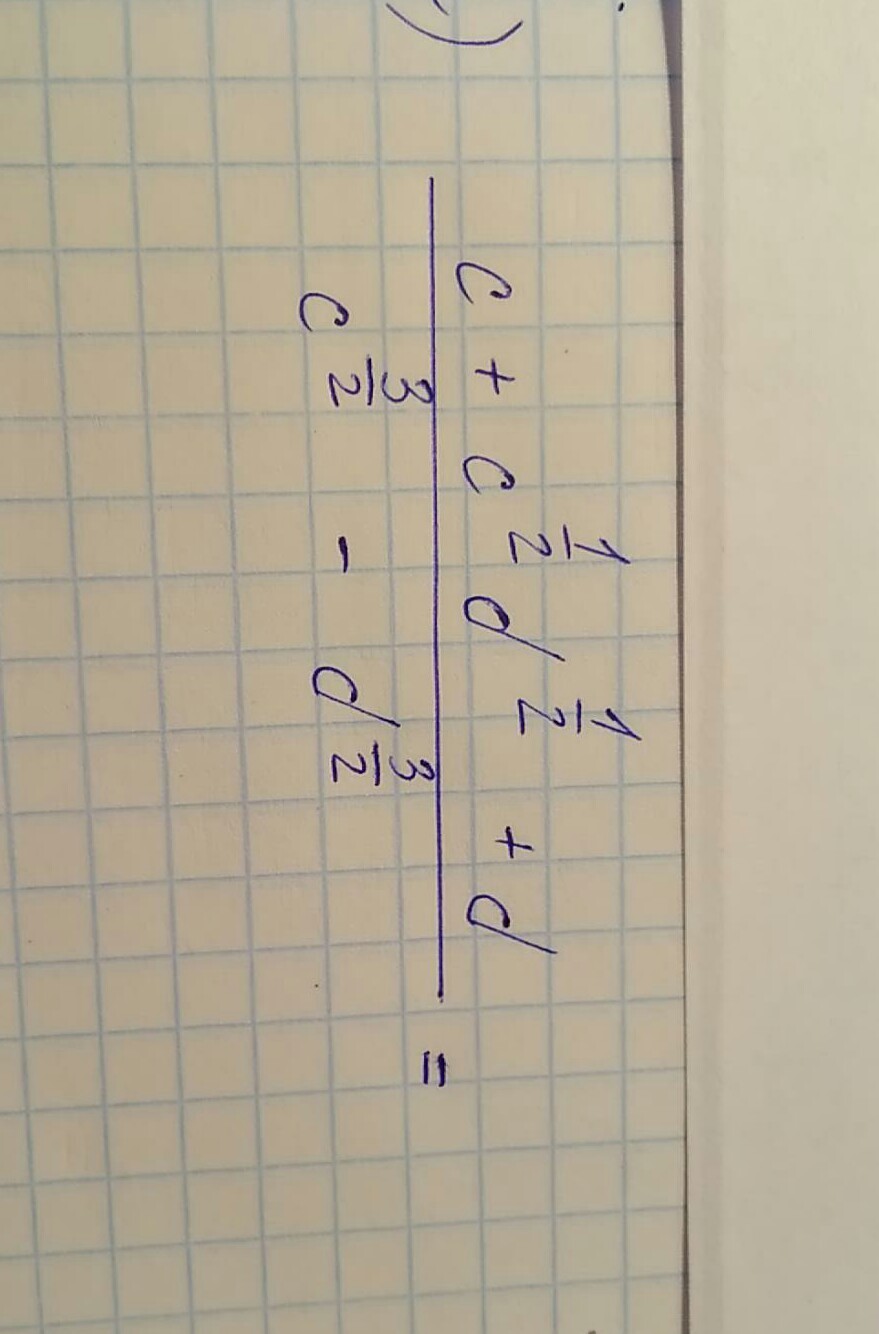 )
c + c^{\frac{1}{2}} d^{\frac{1}{2}} + d
c^{\frac{3}{2}} - d^{\frac{3}{2}}
=